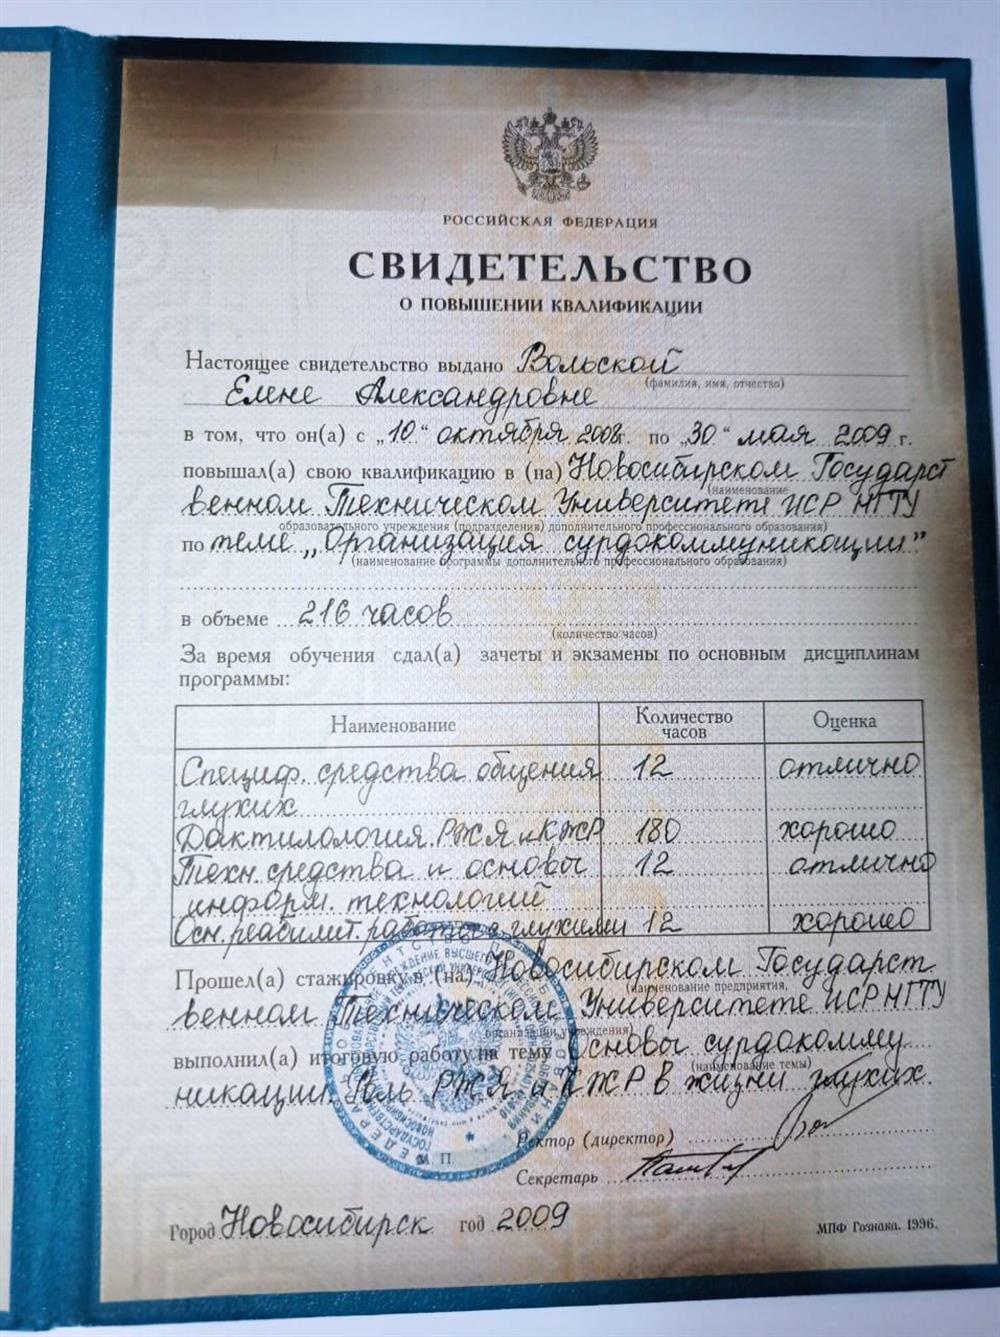 РОССИЙСКАЯ ФЕДЕРАЦИЯ
СВИДЕТЕЛЬСТВО
О ПОВЫШЕНИИ КВАЛИФИКАЦИИ
Настоящее свидетельство выдано Вольской
(фамилия, имя, отчество)
Елене Александровне
в том, что он(а) с „10“ октября 2008г. по „30“ мая 2009 г.
повышал(а) свою квалификацию в (на) Новосибирском Государст
(наименование
венном Техническом Университете ИСР НГТУ
образовательного учреждения (подразделения) дополнительного профессионального образования)
по теме „Организация сурдокоммуникации"
(наименование программы дополнительного профессионального образования)
в объеме 216 часов
(количество часов)
За время обучения сдал(а) зачеты и экзамены по основным дисциплинам
программы:
Наименование Количество часов Оценка
Специф. средства общения 12 отлично
глухих
Дактилология. РЖЯ и КЖР 180 хорошо
Техн. средства и основы 12 отлично
информ. технологий
Осн. реабилит. работы с глухими 12 хорошо
Прошел(а) стажировку в (на) Новосибирском Государст
(наименование предприятия,
венном Техническом Университете ИСР НГТУ
организации, учреждения)
выполнил(а) итоговую работу на тему Основы сурдокомму
(наименование темы)
никации. Роль РЖЯ и КЖР в жизни глухих.
Ректор (директор)
М. П.
Секретарь
Город Новосибирск год 2009
МПФ Гознака. 1996.